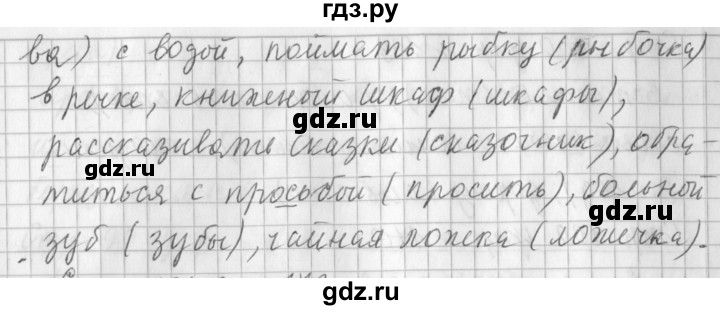 гдз.ру
ва) с водой, поймать рыбку (рыбочка)
в речке, книжный шкаф (шкафы),
gdz.ru
рассказывать сказки (сказочник), обра-
gdz.ru
титься с просьбой (просить), больной
gdz.ru
зуб (зубы), чайная ложка (ложечка).
gdz.ru